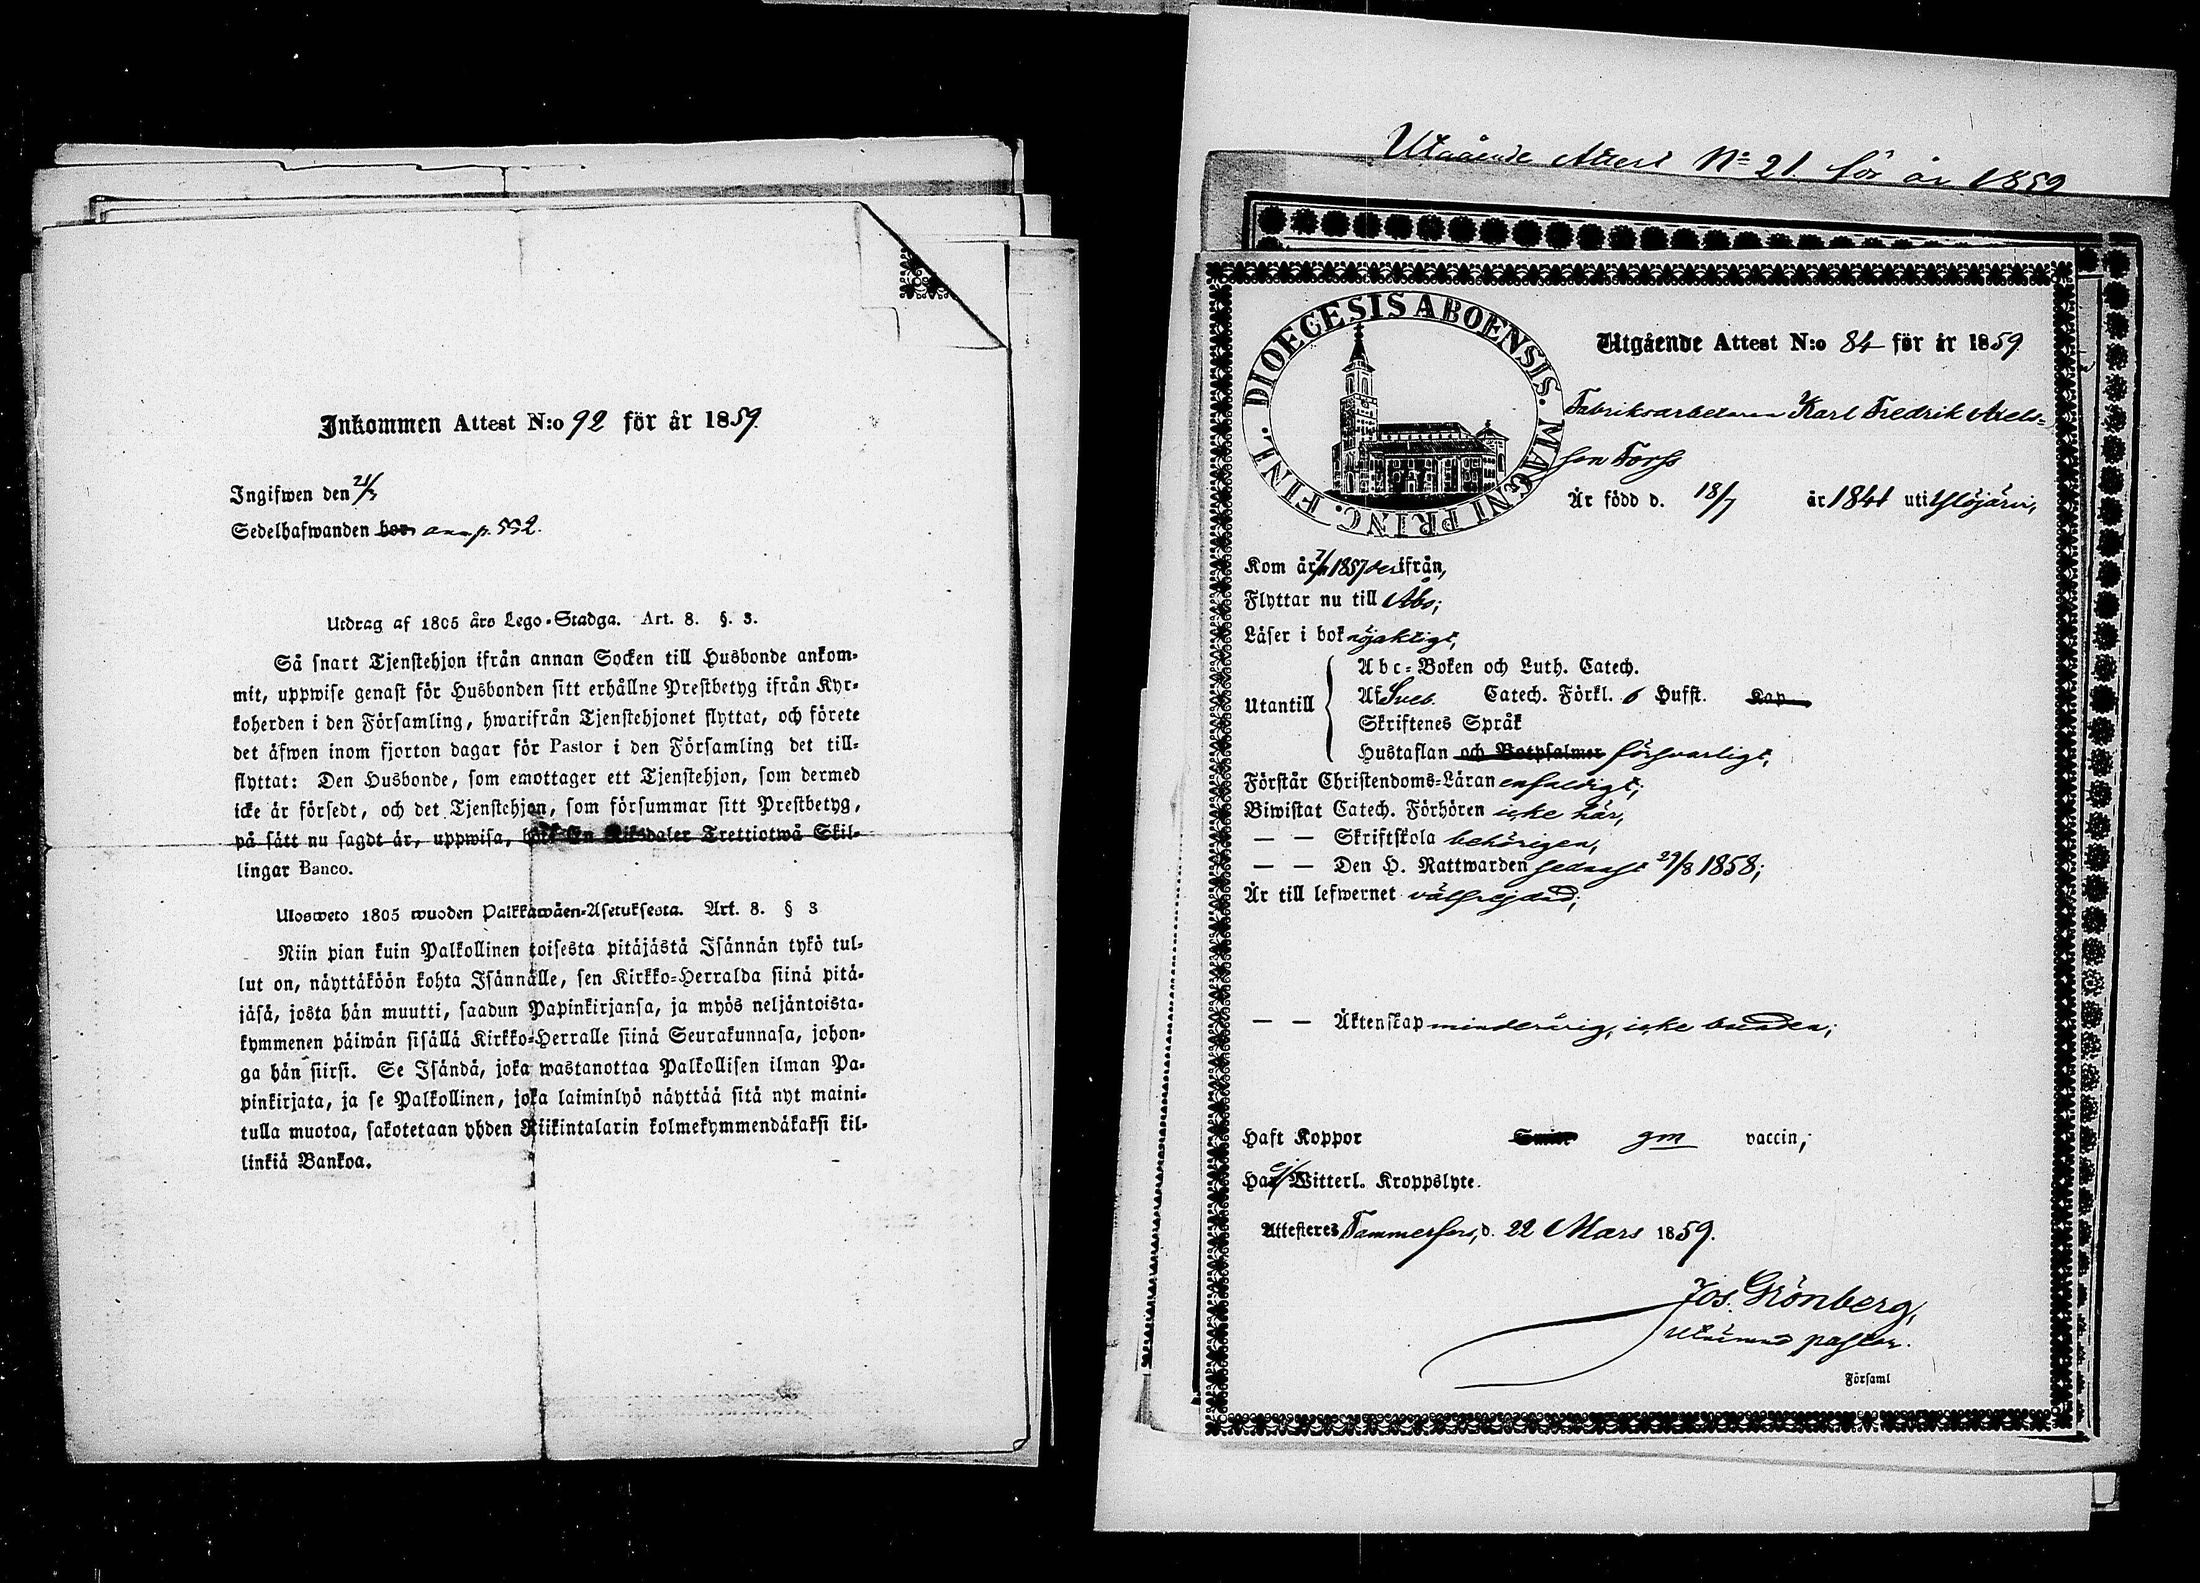 Inkommen Attest N:o 92 för år 1859.
Ingifwen den
Sedelhafwanden bor p. 552.
Utdrag af 1805 års Lego-Stadga. Art. 8. §. 3.
Så snart Tjenstehjon ifrån annan Socken till Husbonde ankom-
mit, uppwise genast för Husbonden sitt erhållne Prestbetyg ifrån Kyr-
koherden i den Församling, hwarifrån Tjenstehjonet flyttat, och förete
det äfwen inom fjorton dagar för Pastor i den Församling det till-
flyttat: Den Husbonde, som emottager ett Tjenstehjon, som dermed
icke är försedt, och det Tjenstehjon, som försummar sitt Prestbetyg,
på sätt nu sagdt är, uppwisa, böte En Riksdaler Trettiotwå Skil-
lingar Banco.
Ulosweto 1805 wuoden Palkkawäen-Asetuksesta. Art. 8. § 3
Niin pian kuin Palkollinen toisesta pitäjästä Isännän tykö tul-
lut on, näyttäköön kohta Isännälle, sen Kirkko-Herralda siinä pitä-
jäsä, josta hän muutti, saadun Papinkirjansa, ja myös neljäntoista-
kymmenen päiwän sisällä Kirkko-Herralle siinä Seurakunnasa, johon-
ga hän siirsi. Se Isändä, joka wastanottaa Palkollisen ilman Pa-
pinkirjata, ja se Palkollinen, joka laiminlyö näyttää sitä nyt maini-
tulla muotoa, sakotetaan yhden Riikintalarin kolmekymmendäkaksi kil-
linkiä Bankoa.
Utgående Attest No 21. för år 1859
DIOECESIS ABOENSIS. MAGNI PRINC. FINL.
Utgående Attest N:o 84 för år 1859
Fabriksarbetaren Karl Fredrik Axels-
son Forss
Är född d. 18/7 år 1841 uti Ylöjärvi,
Kom år 1857 derifrån,
Flyttar nu till Åbo;
Läser i bok nöjaktigt,
Utantill
Abc-Boken och Luth. Catech.
Af Sveb. Catech. Förkl. 6 Hufst. Kap
Skriftenes Språk
Hustaflan och Botpsalmer försvarligt,
Förstår Christendoms-Läran enfaldigt;
Biwistat Catech. Förhören icke här,
— — Skriftskola behörigen,
— — Den H. Nattwarden sednast 29/8 1858;
Är till lefwernet välfrejdad;
— — Äktenskap minderårig, icke bunden;
Haft Koppor gm vaccin;
Har ej Witterl. Kroppslyte.
Attesteres Tammerfors, d. 22 Mars 1859.
Jos. Grönberg,
pastor.
Församl